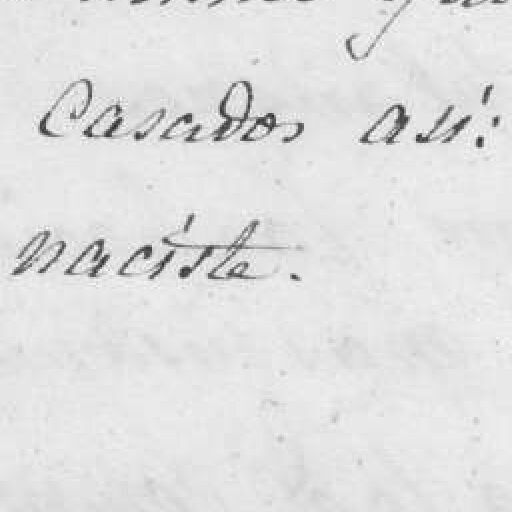 Casados así:
naciste.